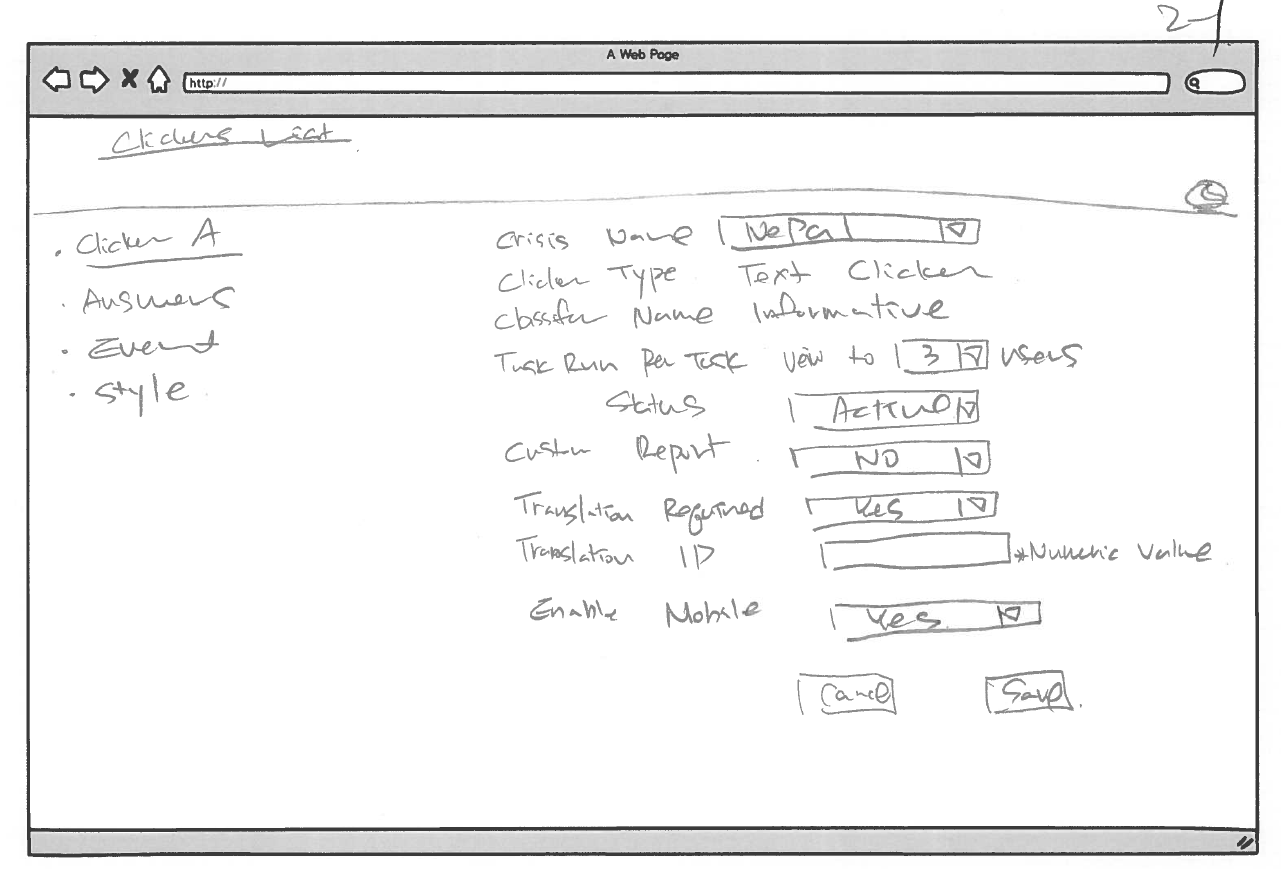 2-1
A Web Page
http://
Clickers List
Clicker A
Answers
Event
Style
Crisis Name Nepal
Clicker Type Text Clicker
Classifer Name Informative
Task Run Per Task veiw to 3 users
Status Active
Custom Report NO
Translation Required Yes
Translation ID *Numeric Value
Enable Mobile Yes
Cancel Save